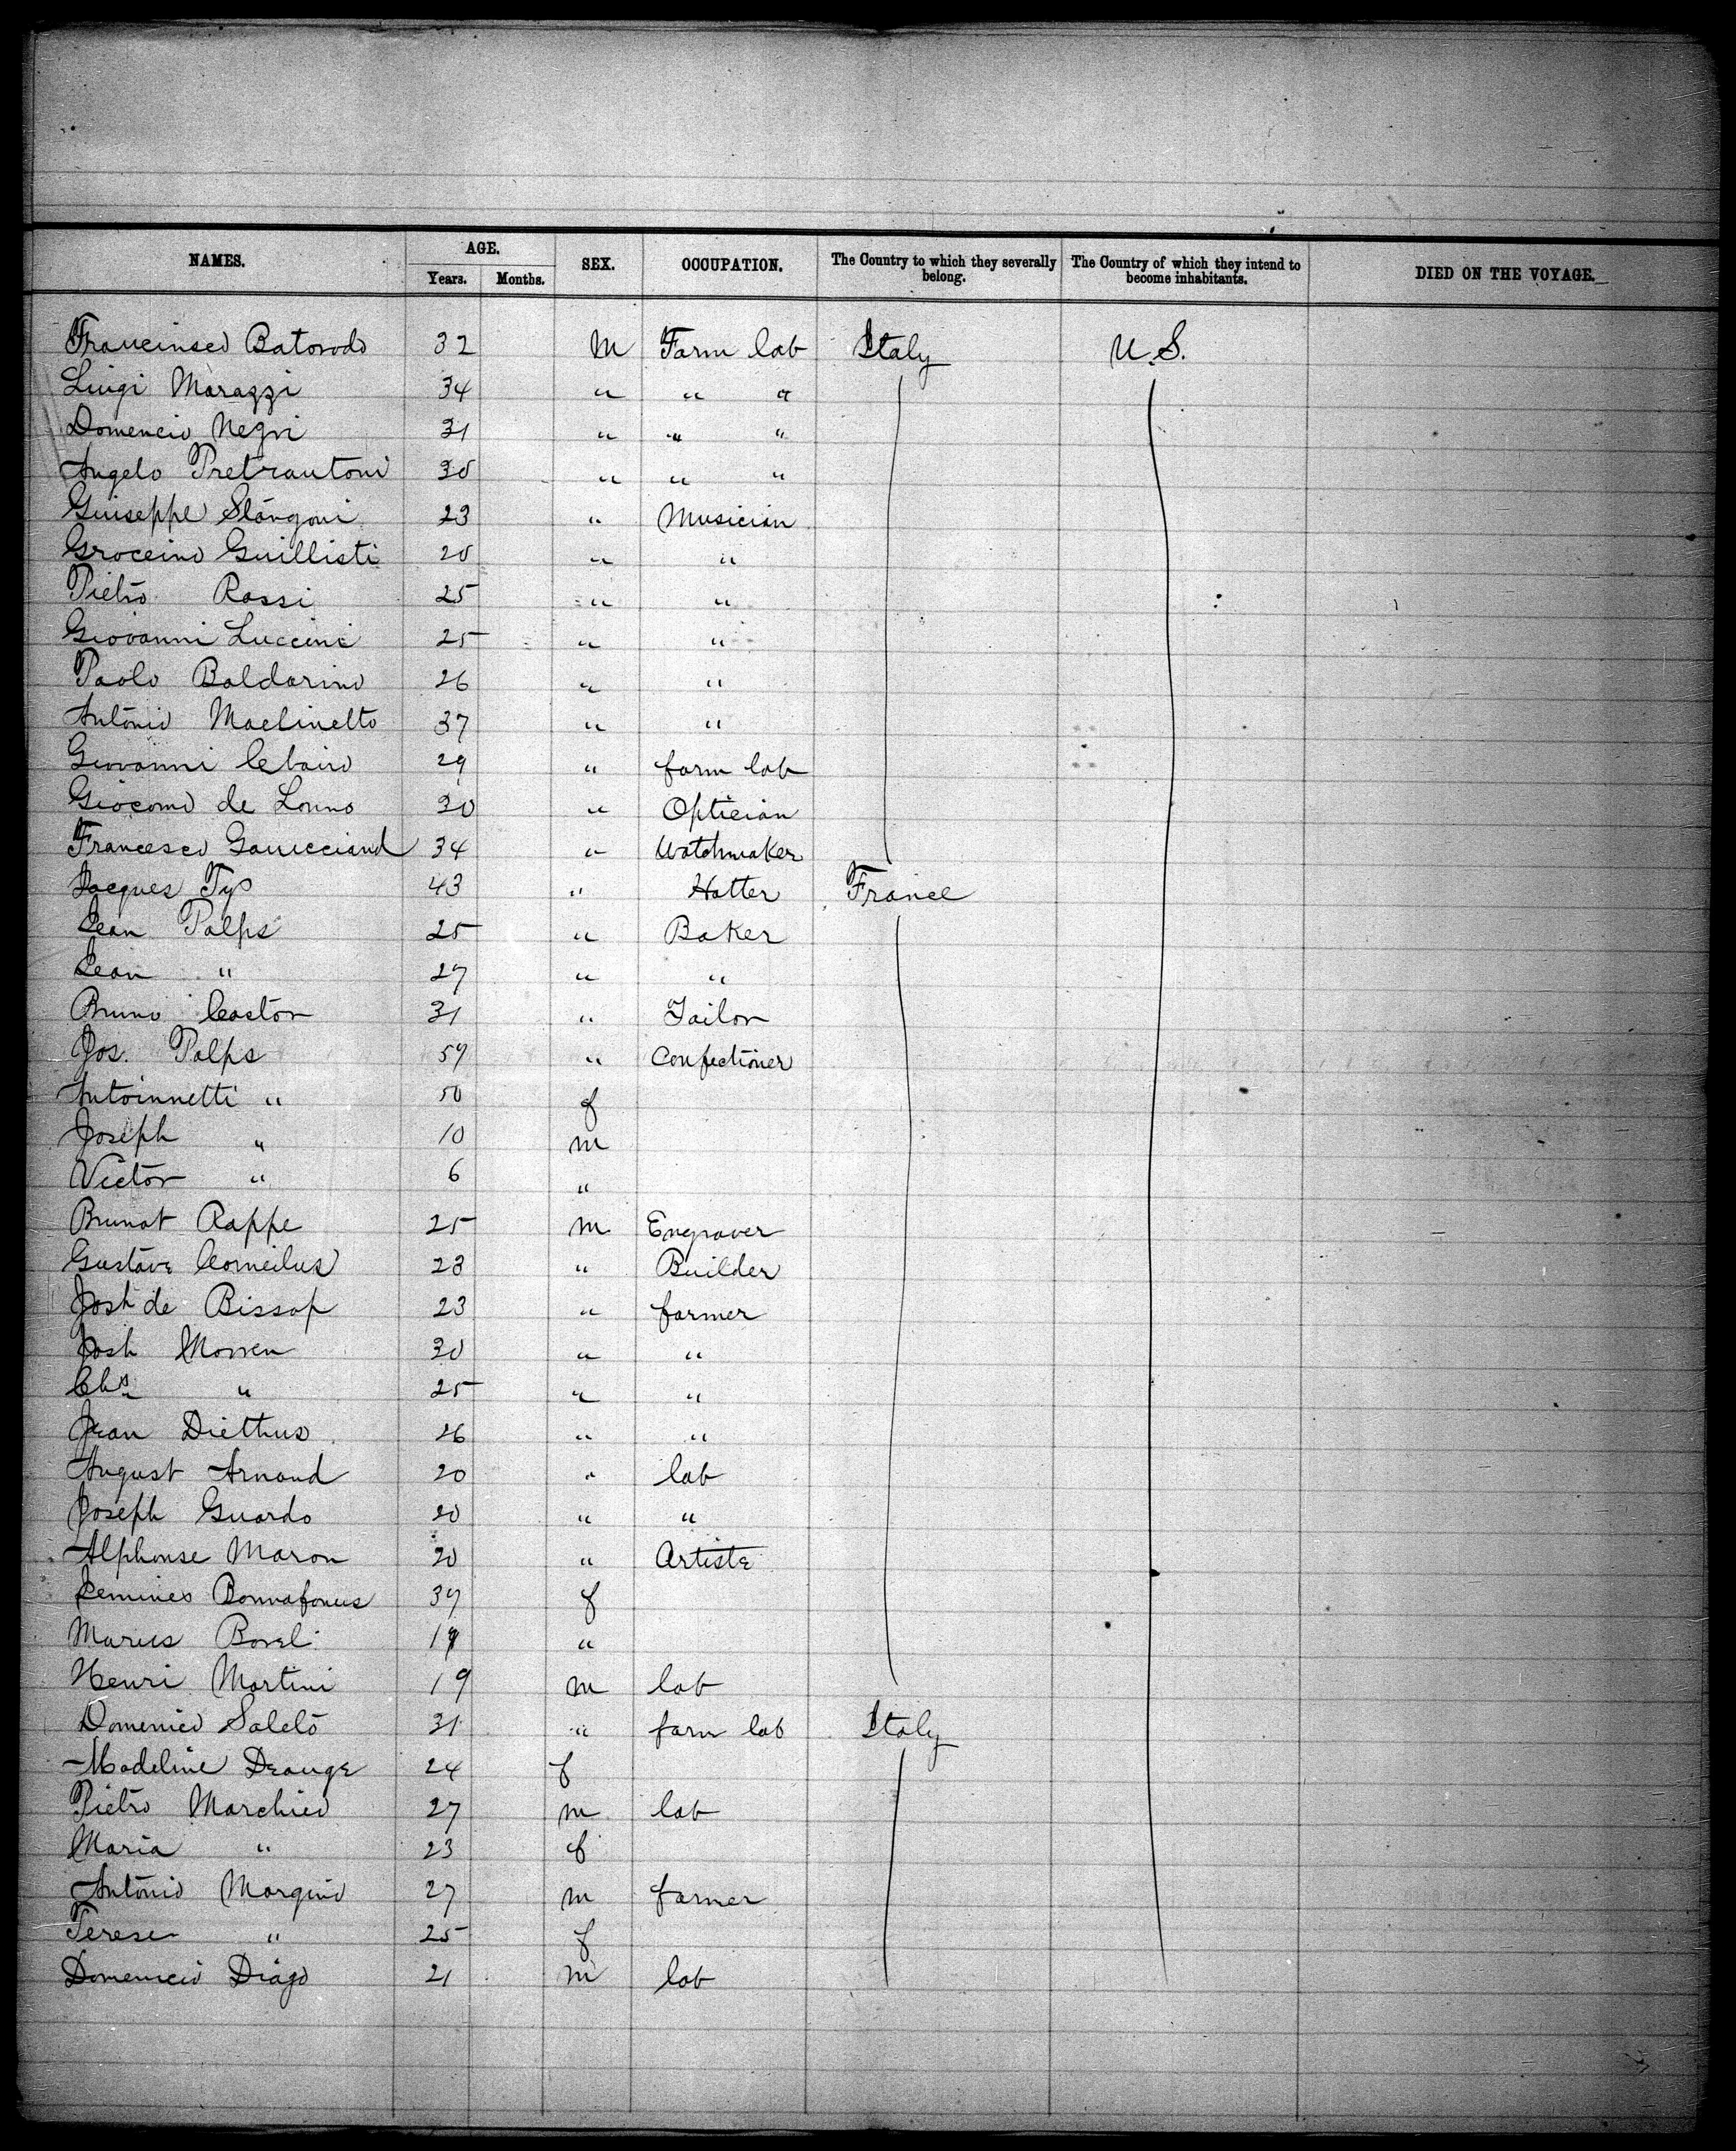 NAMES. AGE. SEX. OCCUPATION. The Country to which they severally belong. The Country of which they intend to become inhabitants. DIED ON THE VOYAGE.
Years. Months.
Francinsco Batorodo 32 M Farm lab Italy U.S.
Luigi Marazzi 34 " " "
Domencio Negri 31 " " "
Angelo Pretrantoni 30 " " "
Guiseppe Stangoni 23 " Musician
Groceino Guillisti 20 " "
Pietro Rossi 25 " "
Giovanni Luccini 25 " "
Paolo Baldarino 26 " "
Antonio Maelinetto 37 " "
Giovanni Cebario 29 " farm lab
Giocomo de Lonno 30 " Optician
Francesco 34 " Watchmaker
Jacques Tys 43 " Hatter France
Jean Palps 25 " Baker
Jean " 27 " "
Bruno Caston 31 " Tailor
Jos. Palps 59 " Confectioner
Antoinnetti " 50 f
Joseph " 10 m
Victor " 6 "
Brunot Rappe 25 m Engraver
Gustave Corneilus 23 " Builder
Josh de Bissop 23 " farmer
Josh Morren 30 " "
Chs " 25 " "
Jean Diethus 26 " "
August Arnaud 20 " lab
Joseph Guardo 20 " "
Alphonse Maron 20 " Artiste
Jemines Bonnafonus 37 f
Marius Boreli 19 "
Henri Martini 19 m lab
Domenico Saleto 31 " farm lab Italy
Madeline Deange 24 f
Pietro Marchico 27 m lab
Maria " 23 f
Antonio Margino 27 m farmer
Terese " 25 f
Domenicio Diago 21 m lab